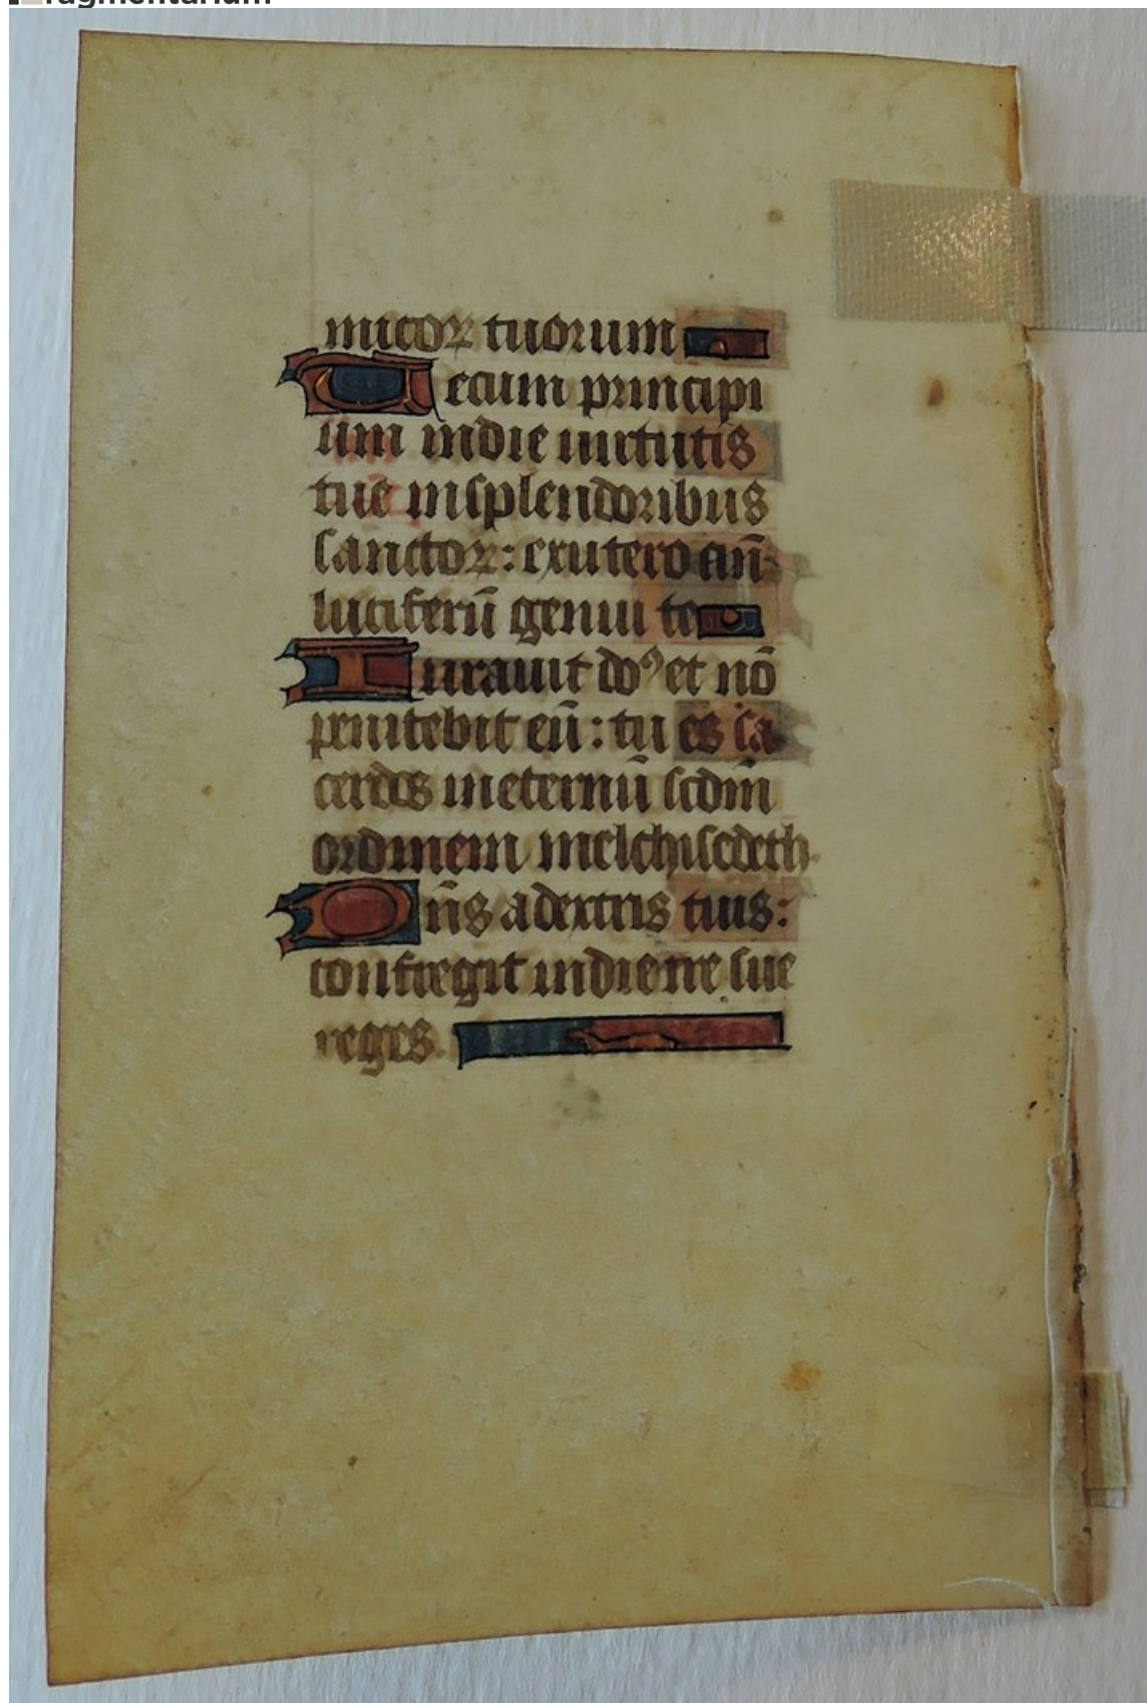 ragmentarium
micoꝝ tuorum
Tecum principi
um indie uirtutis
tue insplendoribus
sanctoꝝ: exutero an̄
luciferū genui te
Iurauit do⁹ et nō
penitebit eū: tu es sa
cerdos ineternū scdm̄
ordinem melchisedeth.
Dn̄s adextris tuis:
confregit indie ire sue
reges.